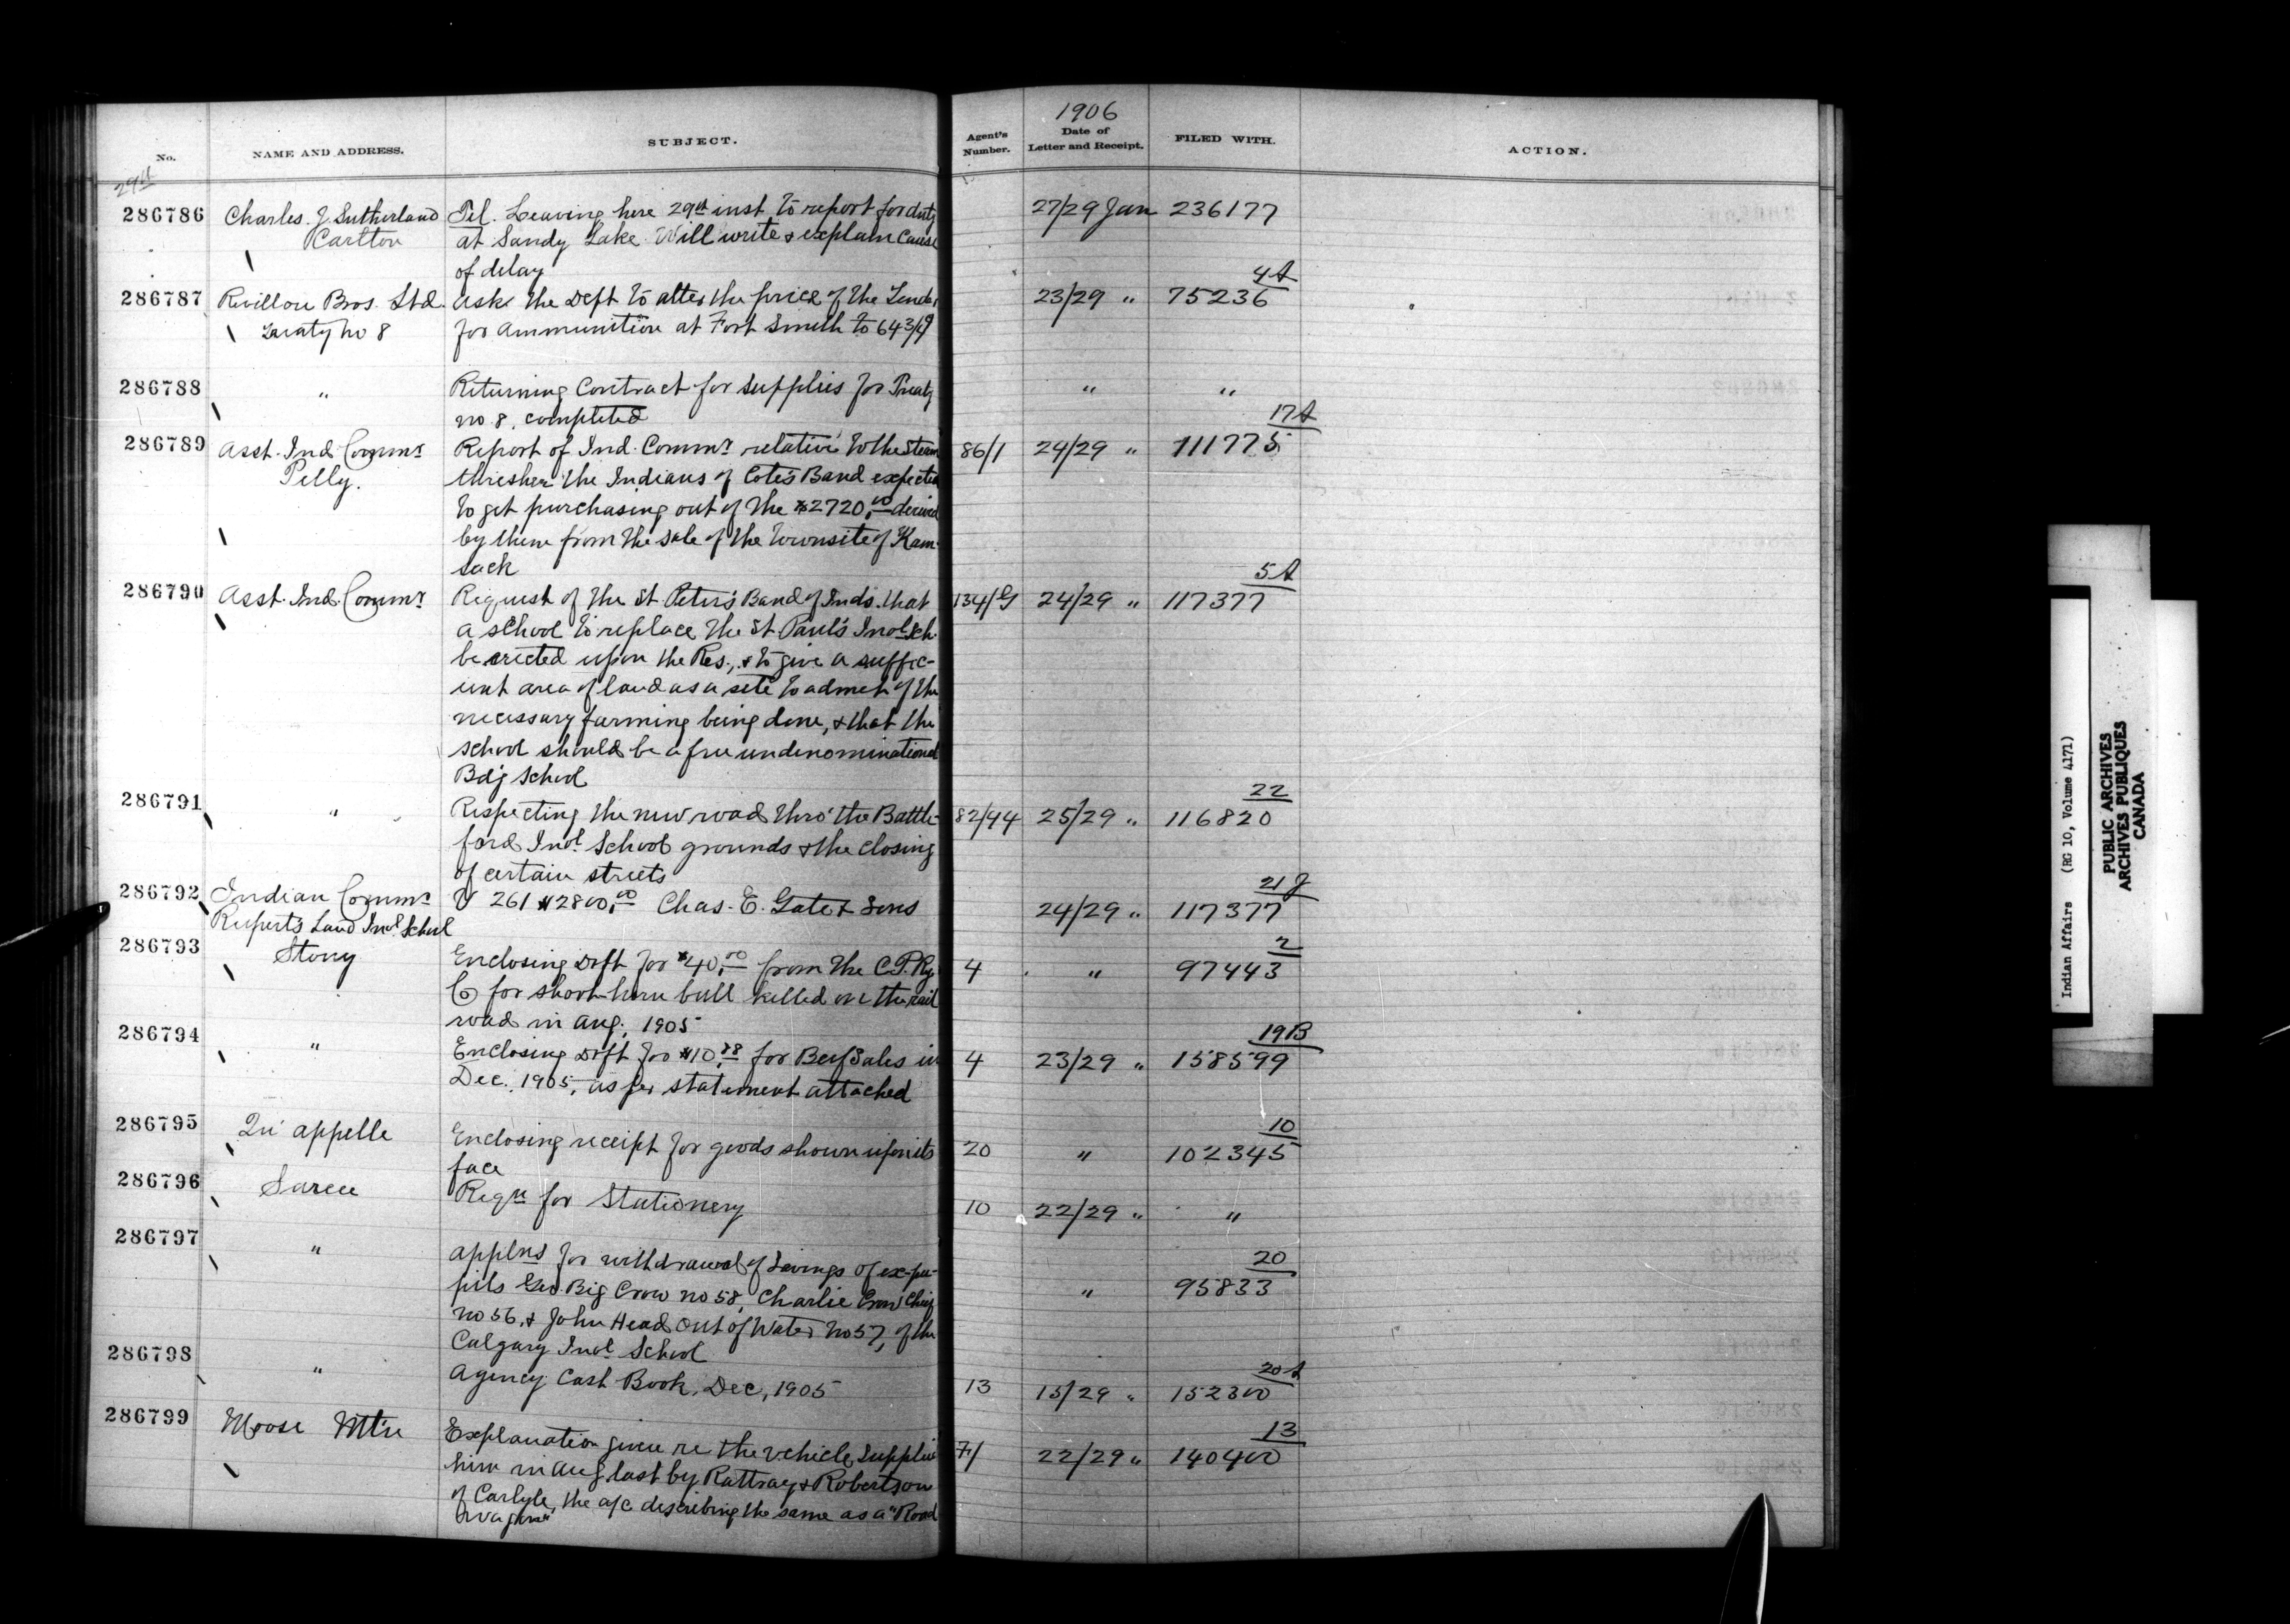 1906
No.
NAME AND ADDRESS.
SUBJECT.
Agent's Number.
Date of Letter and Receipt.
FILED WITH.
ACTION.
29th
286786 Charles. J. Sutherland Tel. Leaving here 29th inst to report for duty 27/29 Jan 236177
Carlton at Sandy Lake Will write & explain cause
of delay
4A
286787 Revillon Bros. Ltd. Asks the Dept to alter the price of the Tender 23/29 " 75236
Treaty no 8 for ammunition at Fort Smith to 64 3/4¢
286788 " Returning Contract for supplies for Treaty " "
no 8, completed
17A
286789 Asst. Ind. Commr Report of Ind. Commr relative to the Steam 86/1 24/29 " 111775
Pelly. thresher the Indians of Cote's Band expected
to get purchasing out of the $2720.00 derived
by them from the sale of the townsite of Kam-
sack
5A
286790 Asst. Ind. Commr Request of the St Peter's Band of Inds. that 134/G 24/29 " 117377
a school to replace the St Paul's Indl Sch.
be erected upon the Res., & to give a suffic-
ient area of land as a site to admit of the
necessary farming being done, & that the
school should be a free undenominational
Bdg School
22
286791 " Respecting the new road thro' the Battle- 82/44 25/29 " 116820
ford Indl School grounds & the closing
of certain streets
21J
286792 Indian Commr V 261 $2800.00 Chas. E. Gate & Sons 24/29 " 117377
Rupert's Land Indl School
2
286793 Stony Enclosing Dft for $40.00 from the C.P.Ry 4 " 97443
Co for short-horn bull killed on the rail
road in Aug. 1905
19B
286794 " Enclosing Dft for $10.38 for Beef Sales in 4 23/29 " 158599
Dec. 1905, as per statement attached
10
286795 Qu'appelle Enclosing receipt for goods shown upon its 20 " 102345
face
286796 Sarcee Reqn for Stationery 10 22/29 " "
20
286797 " Applns for withdrawal of Savings of ex-pu- " 95833
pils Geo. Big Crow no 58, Charlie Crow Chief
no 56, & John Head Out of Water no 57, of the
Calgary Indl School
20A
286798 " Agency Cash Book, Dec, 1905 13 15/29 " 152300
13
286799 Moose Mtn Explanation given re the vehicle supplied 7/ 22/29 " 140400
him in Aug last by Rattray & Robertson
of Carlyle, the a/c describing the same as a "Road
Wagon"
Indian Affairs (RG 10, Volume 4171)
PUBLIC ARCHIVES
ARCHIVES PUBLIQUES
CANADA